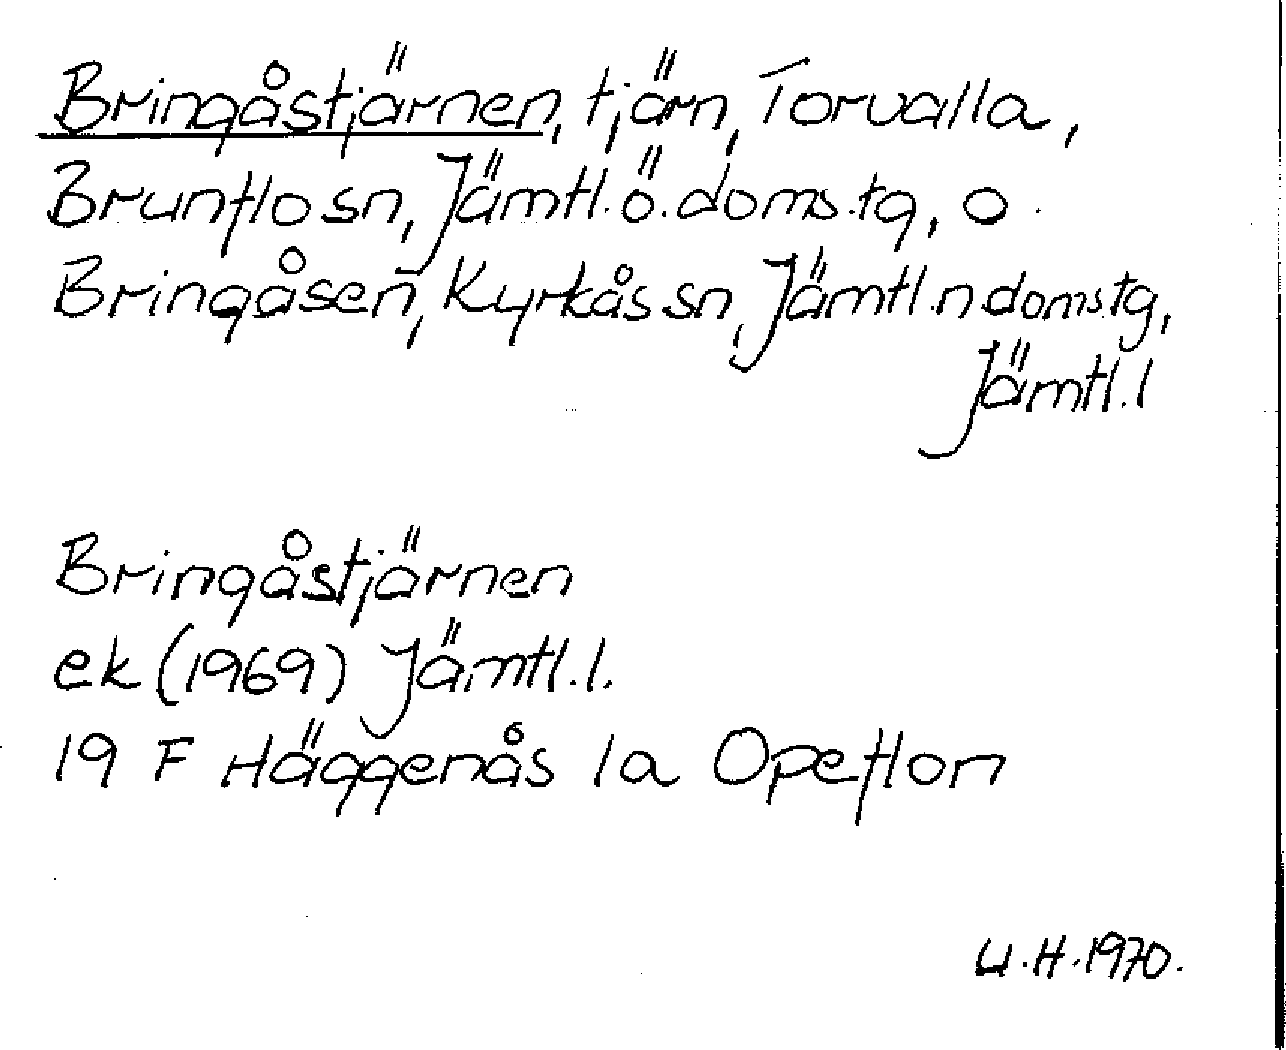 Bringåstjärnen, tjärn, Torvalla,
Brunflo sn, Jämtl. ö. doms.tg, o.
Bringåsen, Kyrkås sn, Jämtl. n doms.tg,
Jämtl. l
Bringåstjärnen
ek (1969) Jämtl. l.
19 F Häggenås 1a Opeflon
U.H. 1970.